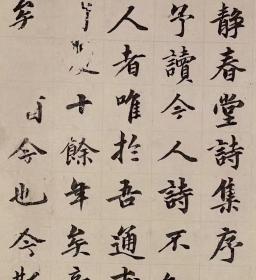 静春堂詩集序
予讀今人詩不
人者唯於吾通
十餘年矣
今也今
矣